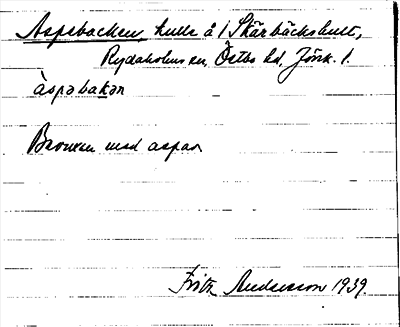 Aspebacken, kulle å 1 Skärbäckshult,
Rydaholms sn, Östbo hd, Jönk. l.
àspəbakən
Backen med aspar
Fritz Andersson 1939.